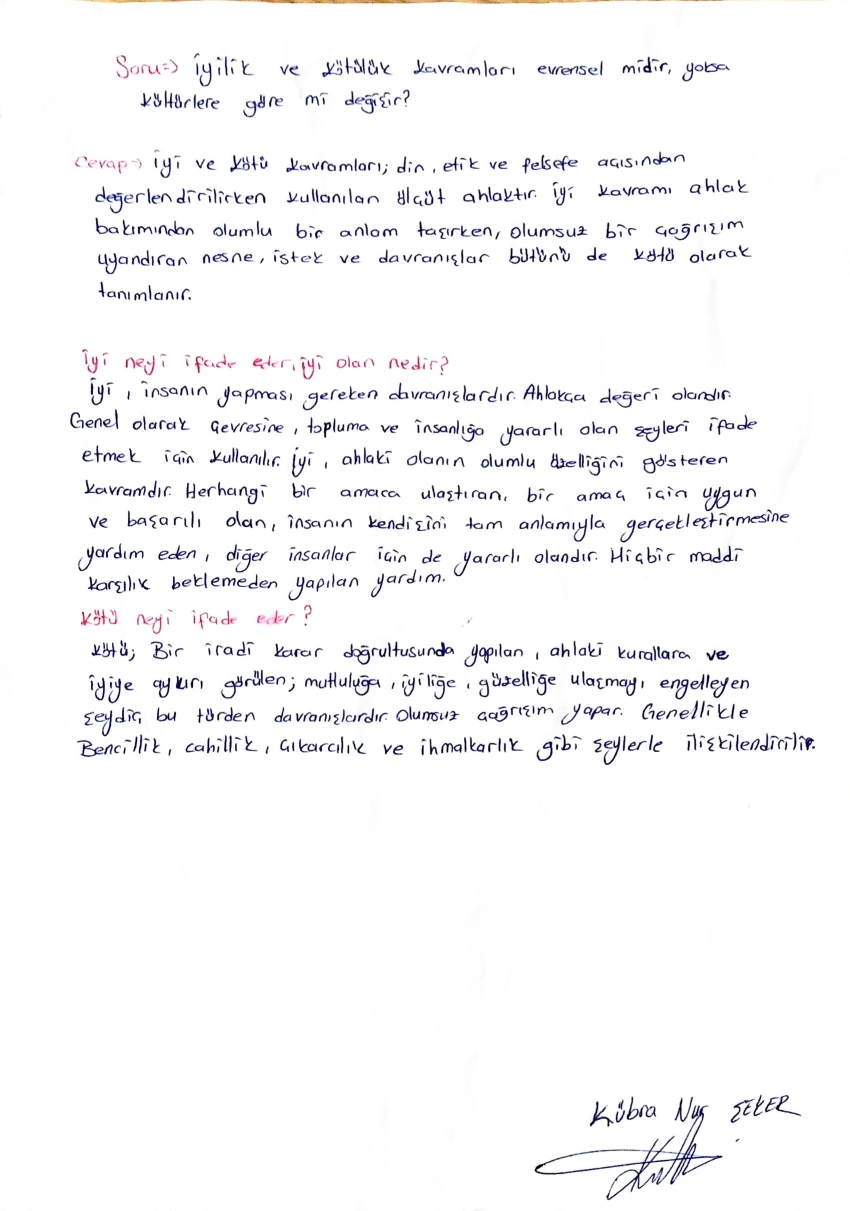 Soru=> İyilik ve kötülük kavramları evrensel midir, yoksa
kültürlere göre mi değişir?
Cevap=> İyi ve kötü kavramları; din, etik ve felsefe açısından
değerlendirilirken kullanılan ölçüt ahlaktır. İyi kavramı ahlak
bakımından olumlu bir anlam taşırken, olumsuz bir çağrışım
uyandıran nesne, istek ve davranışlar bütünü de kötü olarak
tanımlanır.
İyi neyi ifade eder, iyi olan nedir?
İyi, insanın yapması gereken davranışlardır. Ahlakça değeri olandır.
Genel olarak çevresine, topluma ve insanlığa yararlı olan şeyleri ifade
etmek için kullanılır. İyi, ahlaki olanın olumlu özelliğini gösteren
kavramdır. Herhangi bir amaca ulaştıran, bir amaç için uygun
ve başarılı olan, insanın kendisini tam anlamıyla gerçekleştirmesine
yardım eden, diğer insanlar için de yararlı olandır. Hiçbir maddi
karşılık beklemeden yapılan yardım.
Kötü neyi ifade eder?
Kötü; Bir iradi karar doğrultusunda yapılan, ahlaki kurallara ve
iyiye aykırı görülen; mutluluğa, iyiliğe, güzelliğe ulaşmayı engelleyen
şeydir, bu türden davranışlardır. Olumsuz çağrışım yapar. Genellikle
Bencillik, cahillik, çıkarcılık ve ihmalkarlık gibi şeylerle ilişkilendirilir.
Kübra Nur ŞEKER